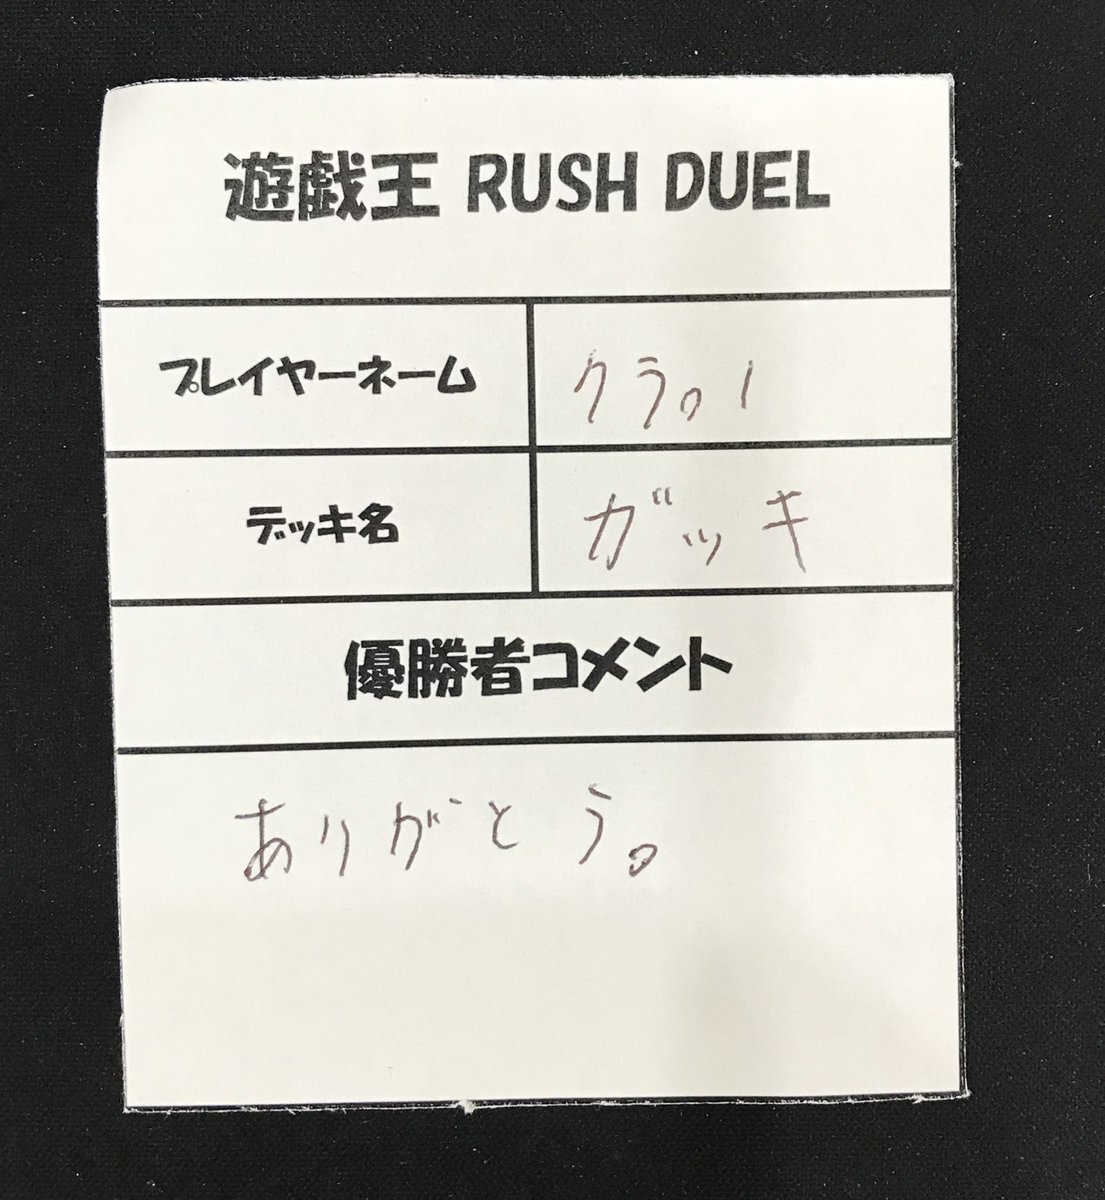 遊戯王 RUSH DUEL
プレイヤーネーム
クラ。1
デッキ名
ガッキ
優勝者コメント
ありがとう。